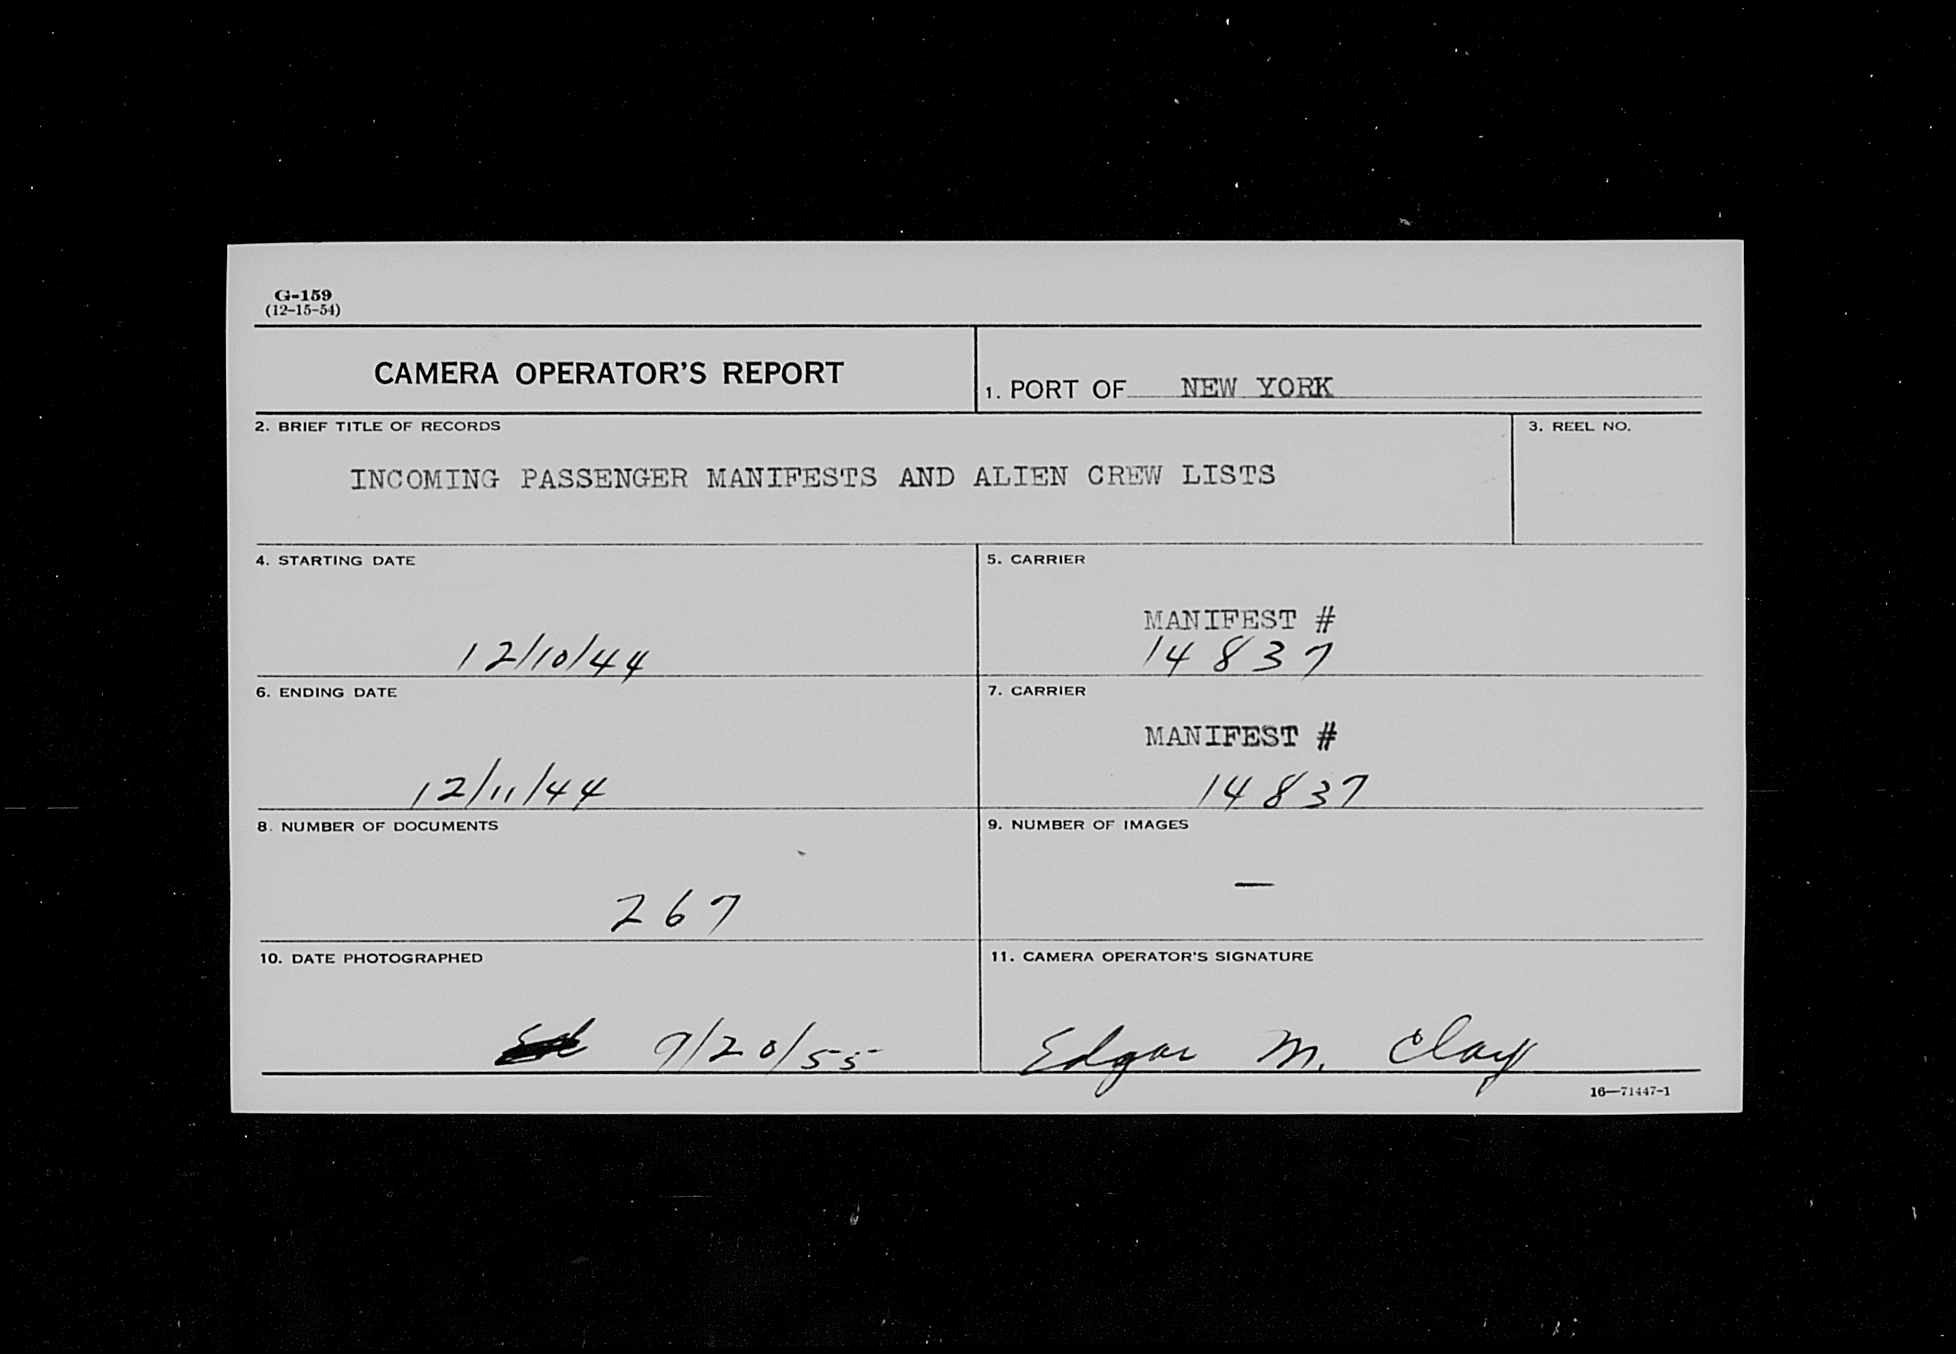 G-159
(12-15-54)
CAMERA OPERATOR'S REPORT
1. PORT OF NEW YORK
2. BRIEF TITLE OF RECORDS
3. REEL NO.
INCOMING PASSENGER MANIFESTS AND ALIEN CREW LISTS
4. STARTING DATE
5. CARRIER
MANIFEST #
12/10/44
14837
6. ENDING DATE
7. CARRIER
MANIFEST #
12/11/44
14837
8. NUMBER OF DOCUMENTS
9. NUMBER OF IMAGES
—
267
10. DATE PHOTOGRAPHED
11. CAMERA OPERATOR'S SIGNATURE
9/20/55
Edgar M. Clay
16—71447-1